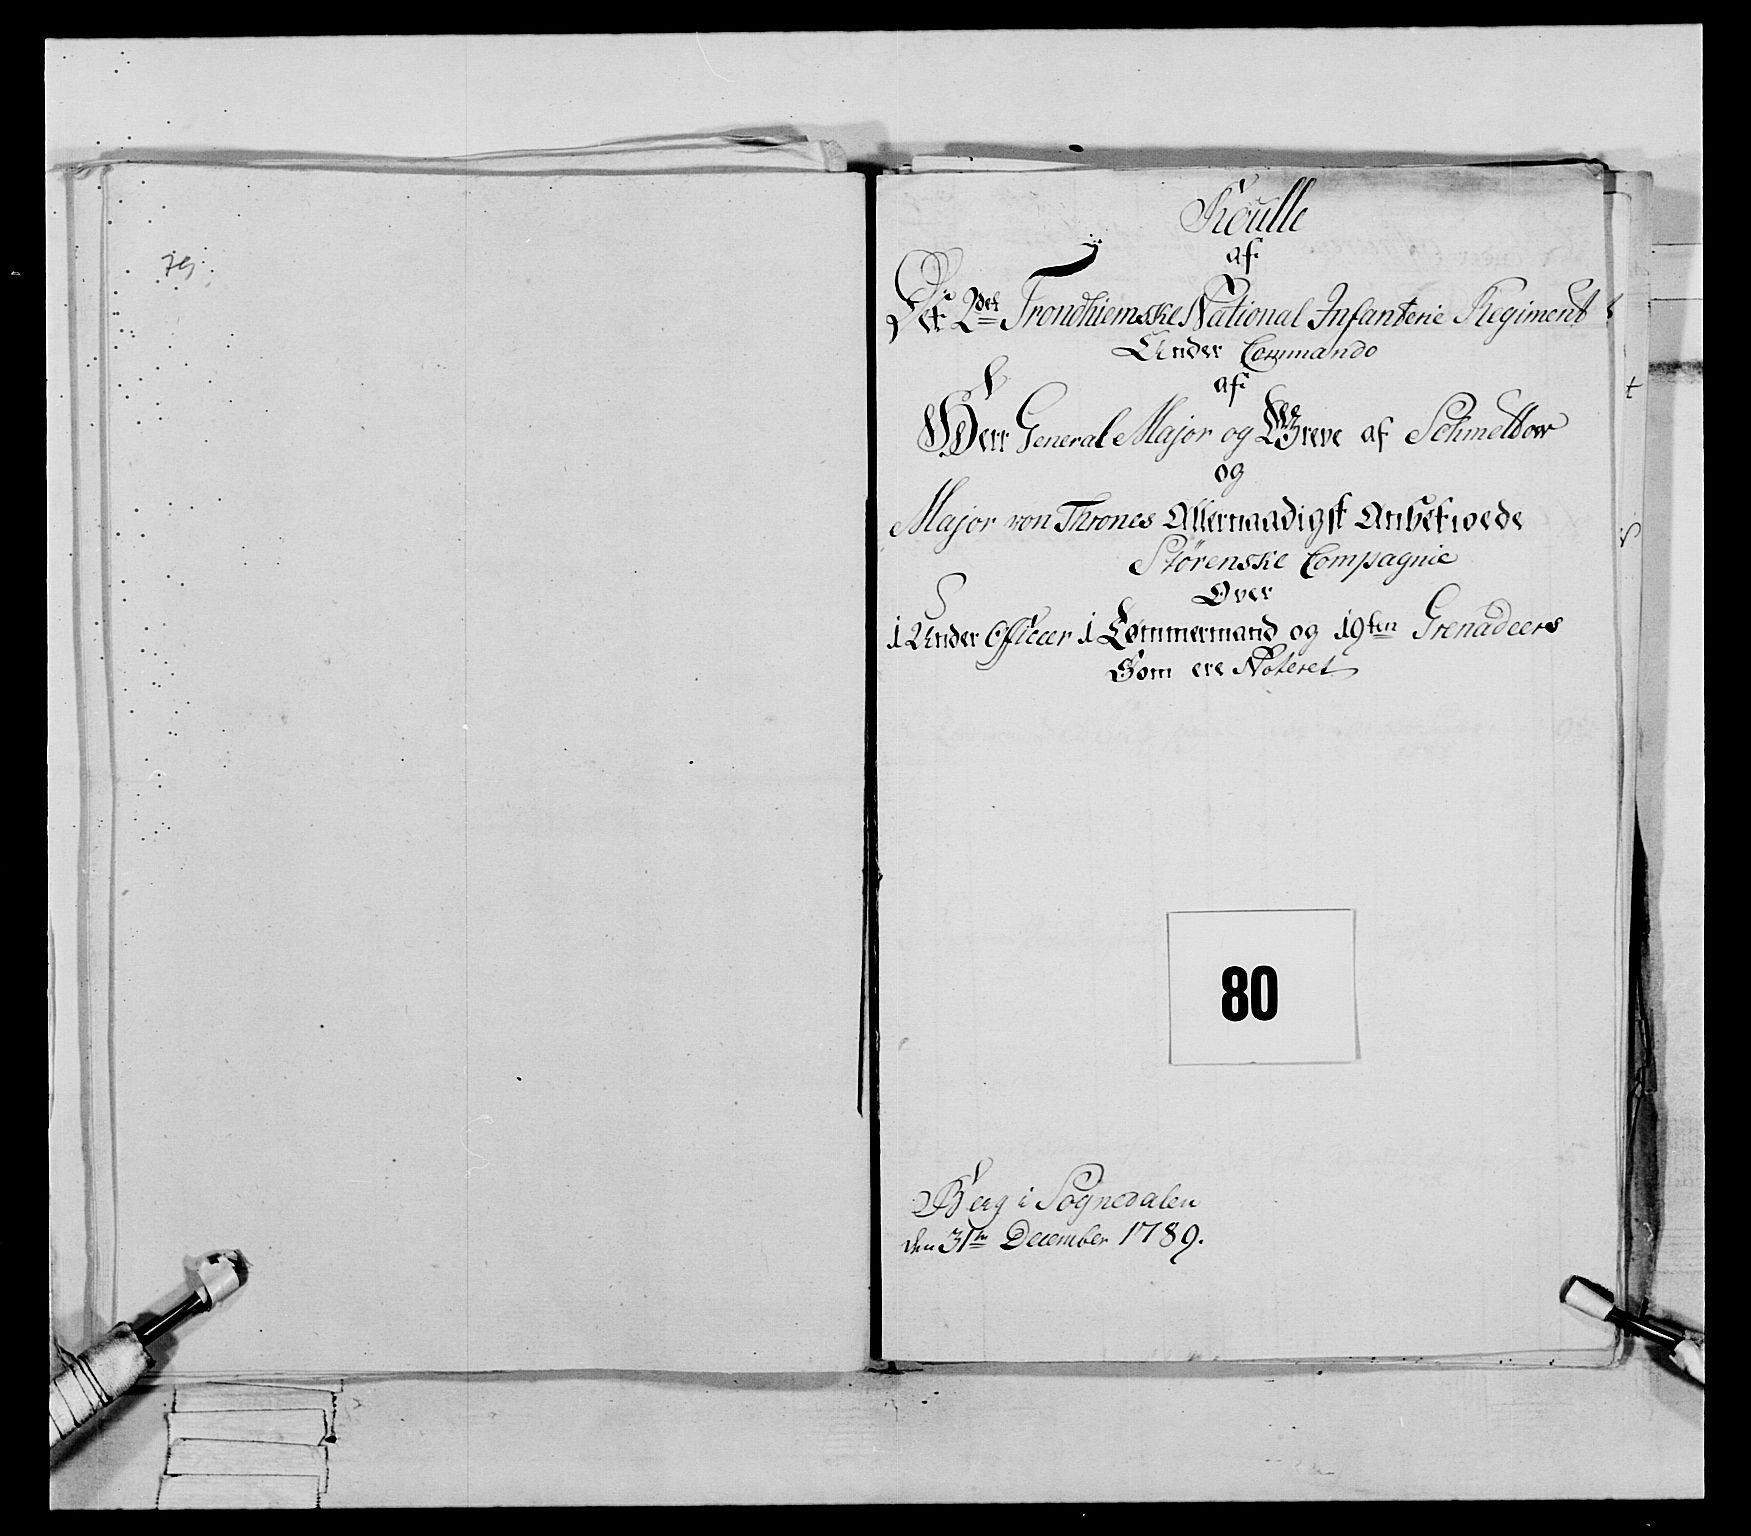 79
Roulle
af
Det 2det Trondhiemske National Infanterie Regiment
Under Commando
af
Herr General Major og Greve af Schmettow
og
Major von Thrones Allernaadigst Anbetroede
Størenske Compagnie
Over
1 Under Officeer 1 Tømmermand og 19ten Grenadeers
Som ere Noteret
80
Berg i Sognedalen
den 31te December 1789.